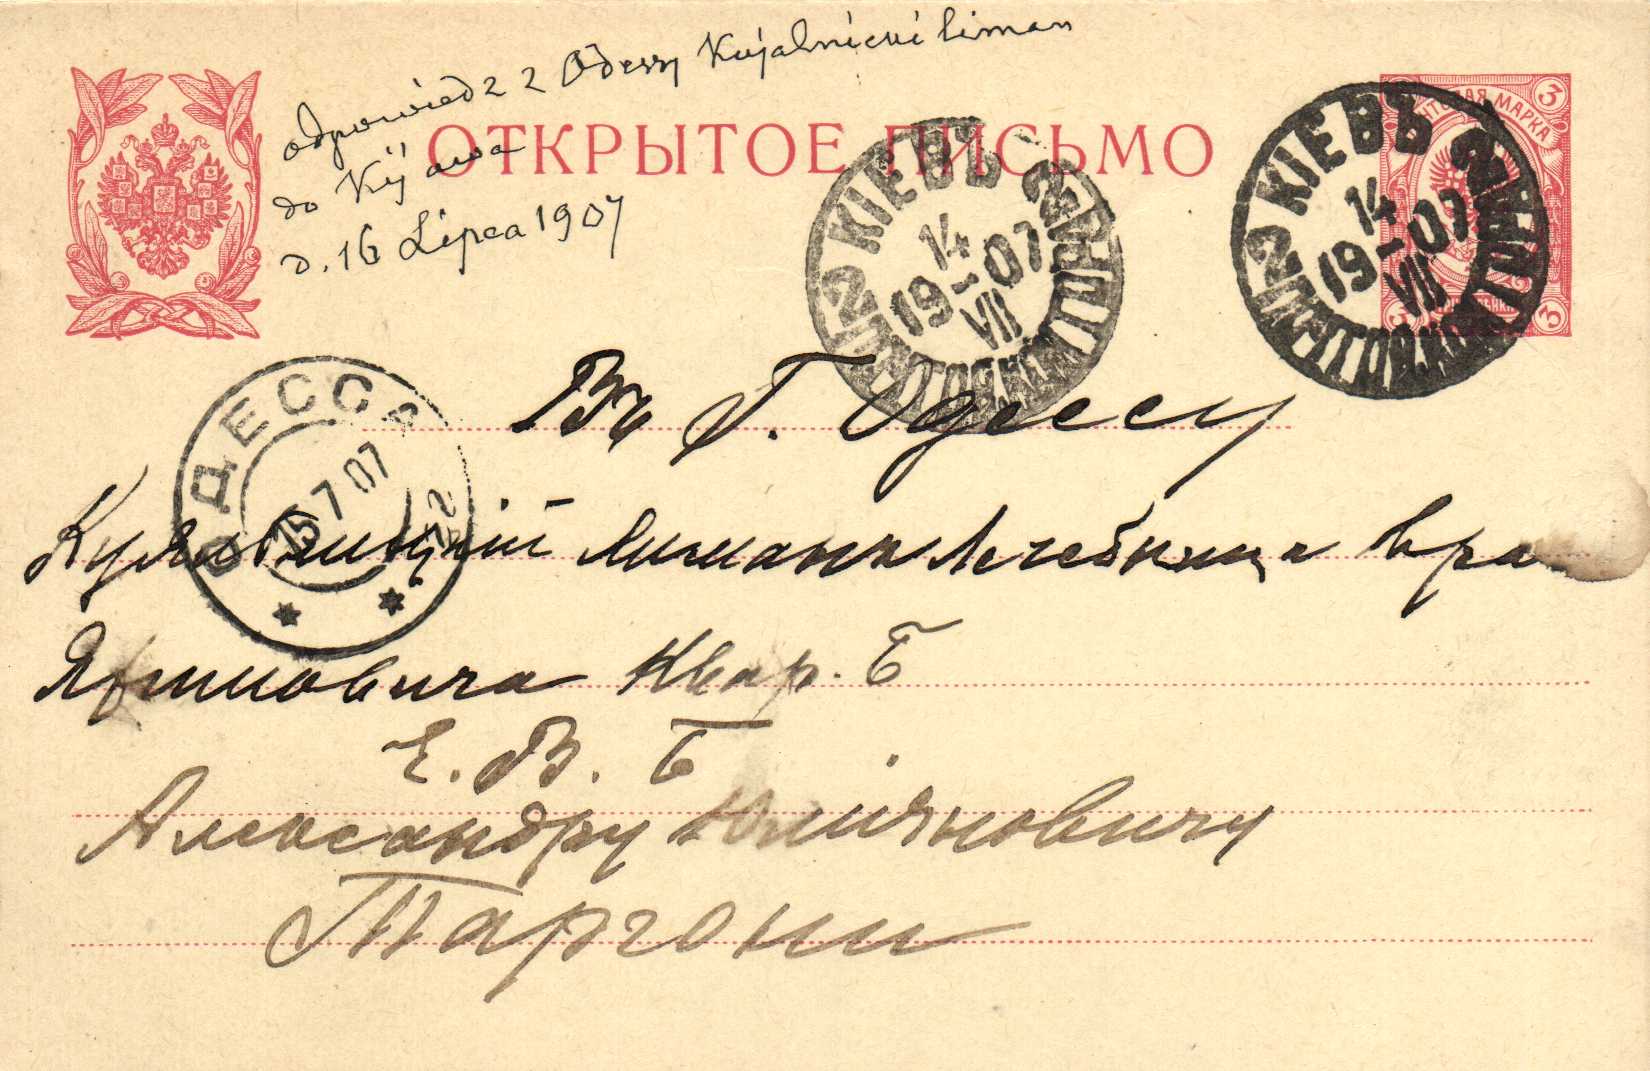 odpowiedz z Odessy Kujalnicki liman
do Kijowa
d. 16 Lipca 1907
ОТКРЫТОЕ ПИСЬМО
ПОЧТОВАЯ МАРКА
3
3
3
КІЕВЪ
14
19-07
VII
2
КІЕВЪ
14
19-07
VII
2
ОДЕССА
15 7 07
Въ Г. Одессу
Куяльницкій Лиманъ Лечебница вра
Яхимовича Квар. Б
Е. В. Б
Александру
Таргони